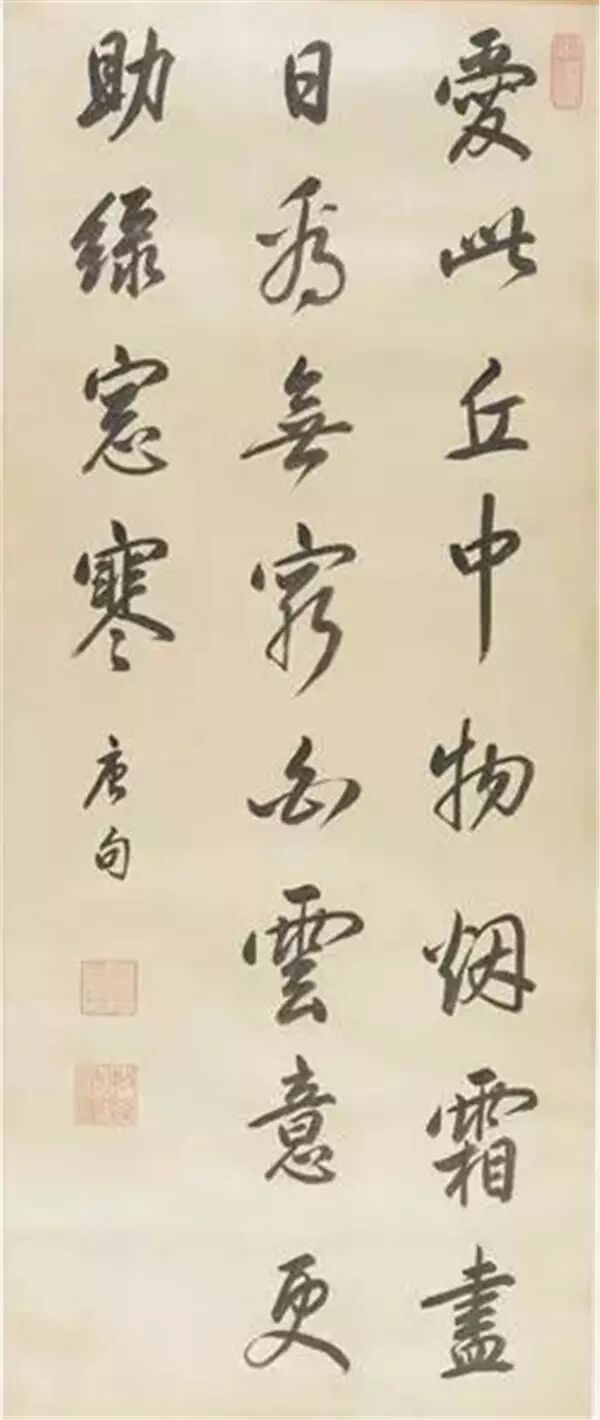 愛此丘中物烟霜盡
日為無窮白雲意更
助綠窓寒
唐句